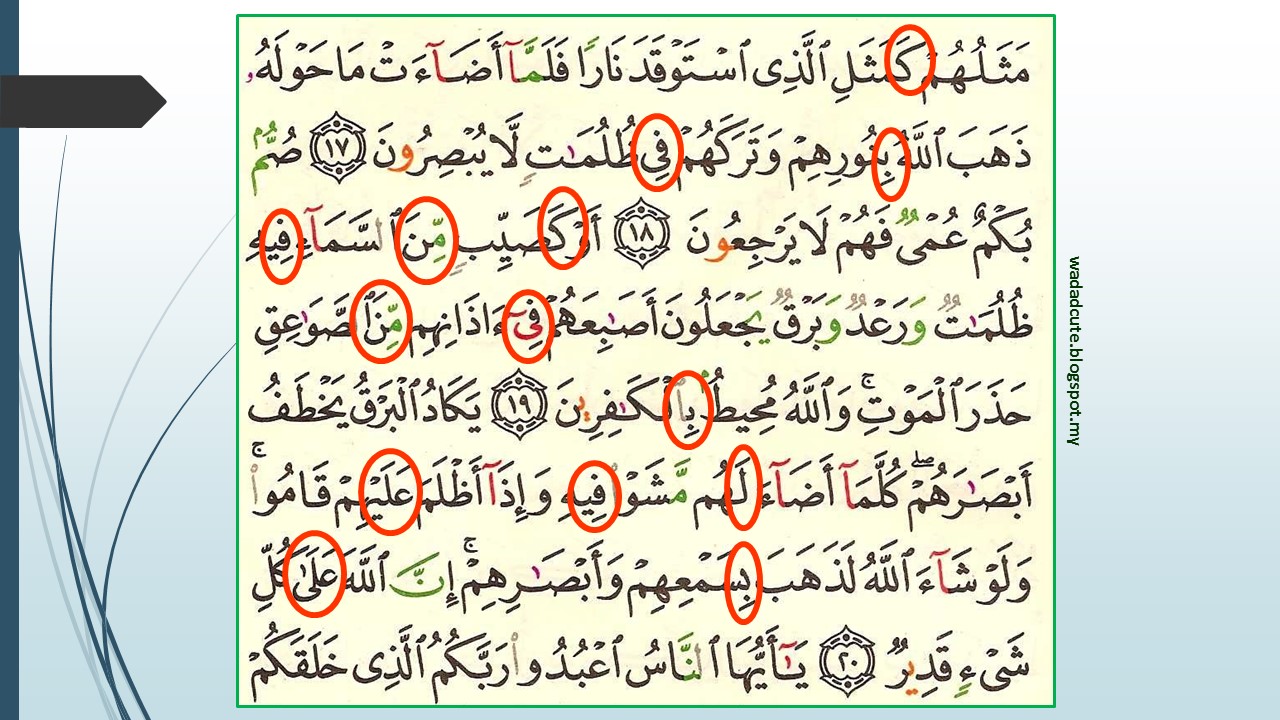 مَثَلُهُمْ كَمَثَلِ ٱلَّذِى ٱسْتَوْقَدَ نَارًا فَلَمَّآ أَضَآءَتْ مَا حَوْلَهُۥ
ذَهَبَ ٱللَّهُ بِنُورِهِمْ وَتَرَكَهُمْ فِى ظُلُمَـٰتٍ لَّا يُبْصِرُونَ ١٧ صُمٌّۢ
بُكْمٌ عُمْىٌ فَهُمْ لَا يَرْجِعُونَ ١٨ أَوْ كَصَيِّبٍ مِّنَ ٱلسَّمَآءِ فِيهِ
ظُلُمَـٰتٌ وَرَعْدٌ وَبَرْقٌ يَجْعَلُونَ أَصَـٰبِعَهُمْ فِىٓ ءَاذَانِهِم مِّنَ ٱلصَّوَٰعِقِ
حَذَرَ ٱلْمَوْتِ ۚ وَٱللَّهُ مُحِيطٌۢ بِٱلْكَـٰفِرِينَ ١٩ يَكَادُ ٱلْبَرْقُ يَخْطَفُ
أَبْصَـٰرَهُمْ ۖ كُلَّمَآ أَضَآءَ لَهُم مَّشَوْا۟ فِيهِ وَإِذَآ أَظْلَمَ عَلَيْهِمْ قَامُوا۟ ۚ
وَلَوْ شَآءَ ٱللَّهُ لَذَهَبَ بِسَمْعِهِمْ وَأَبْصَـٰرِهِمْ ۚ إِنَّ ٱللَّهَ عَلَىٰ كُلِّ
شَىْءٍ قَدِيرٌ ٢٠ يَـٰٓأَيُّهَا ٱلنَّاسُ ٱعْبُدُوا۟ رَبَّكُمُ ٱلَّذِى خَلَقَكُمْ
wadadcute.blogspot.my